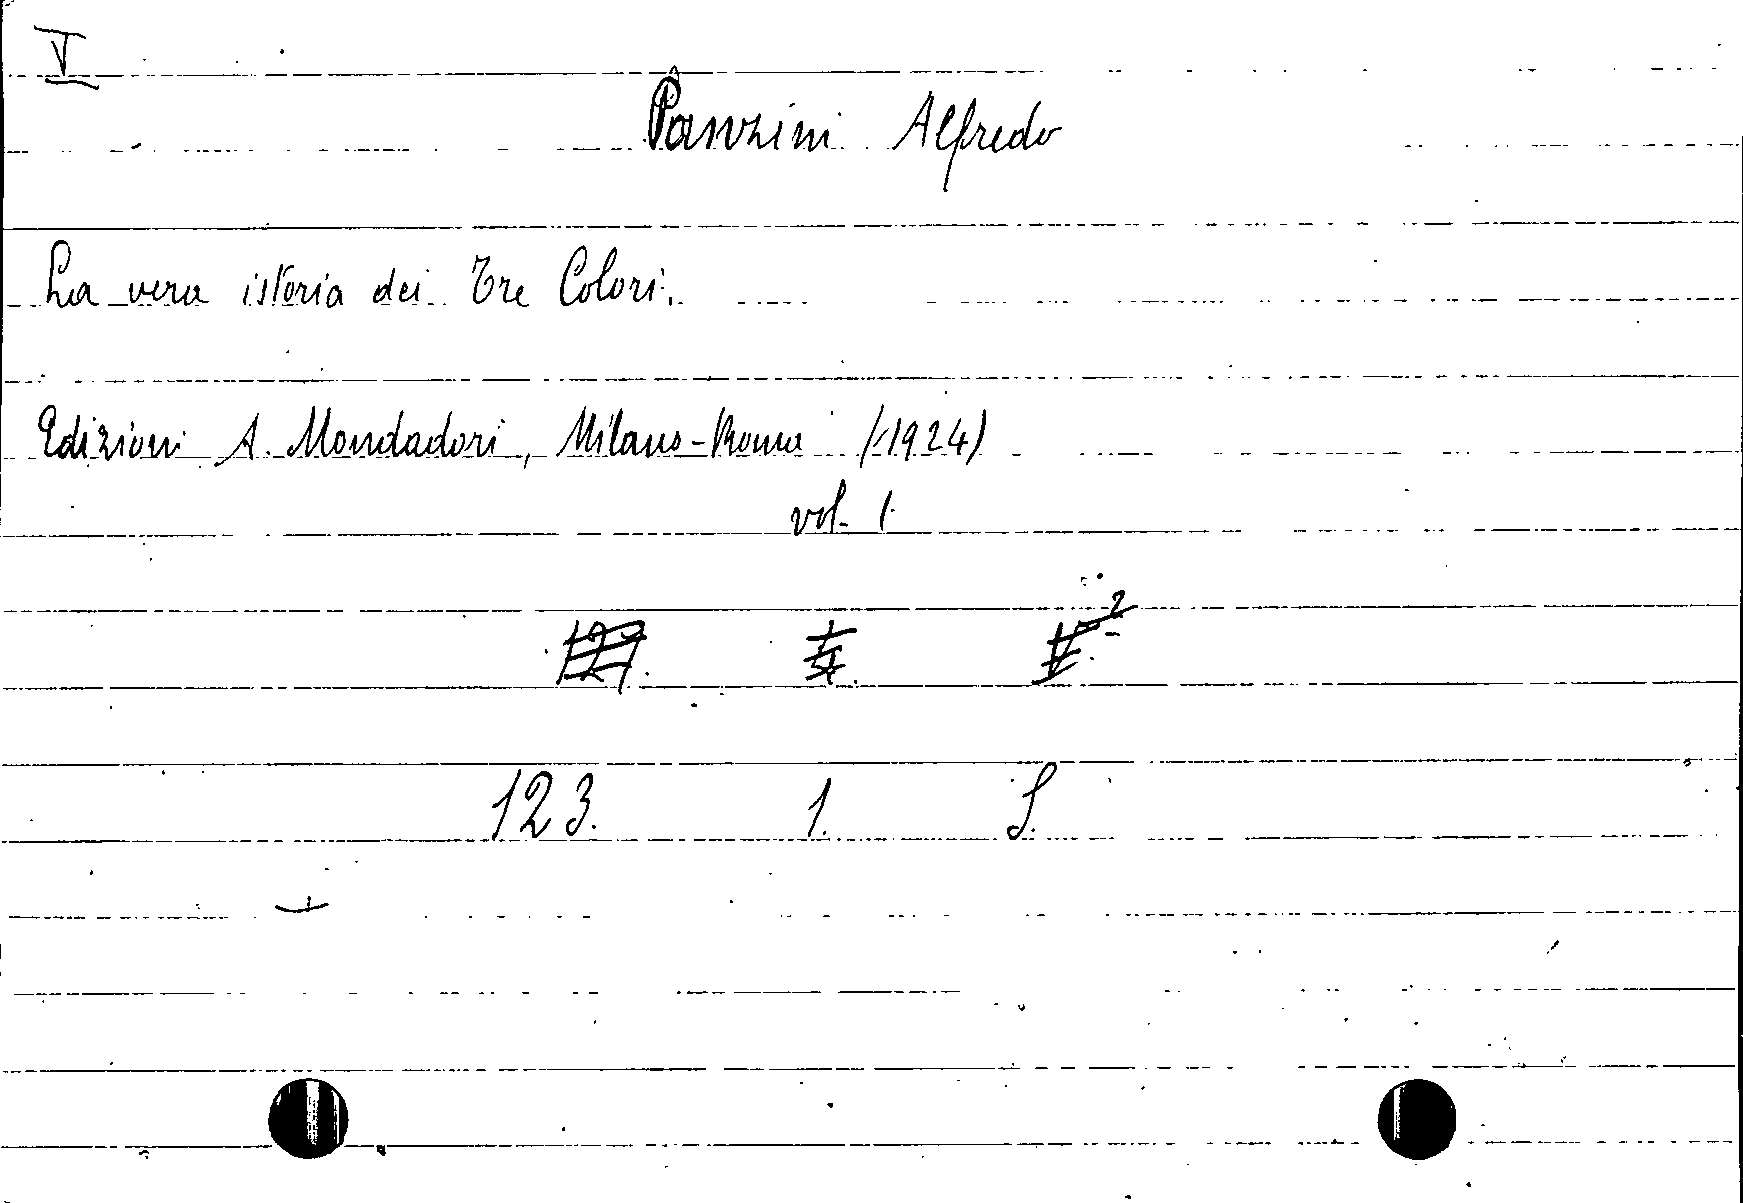 V
Panzini Alfredo
La vera istoria dei Tre Colori.
Edizioni A. Mondadori, Milano-Roma (1924)
vol. 1.
123. 1. S.